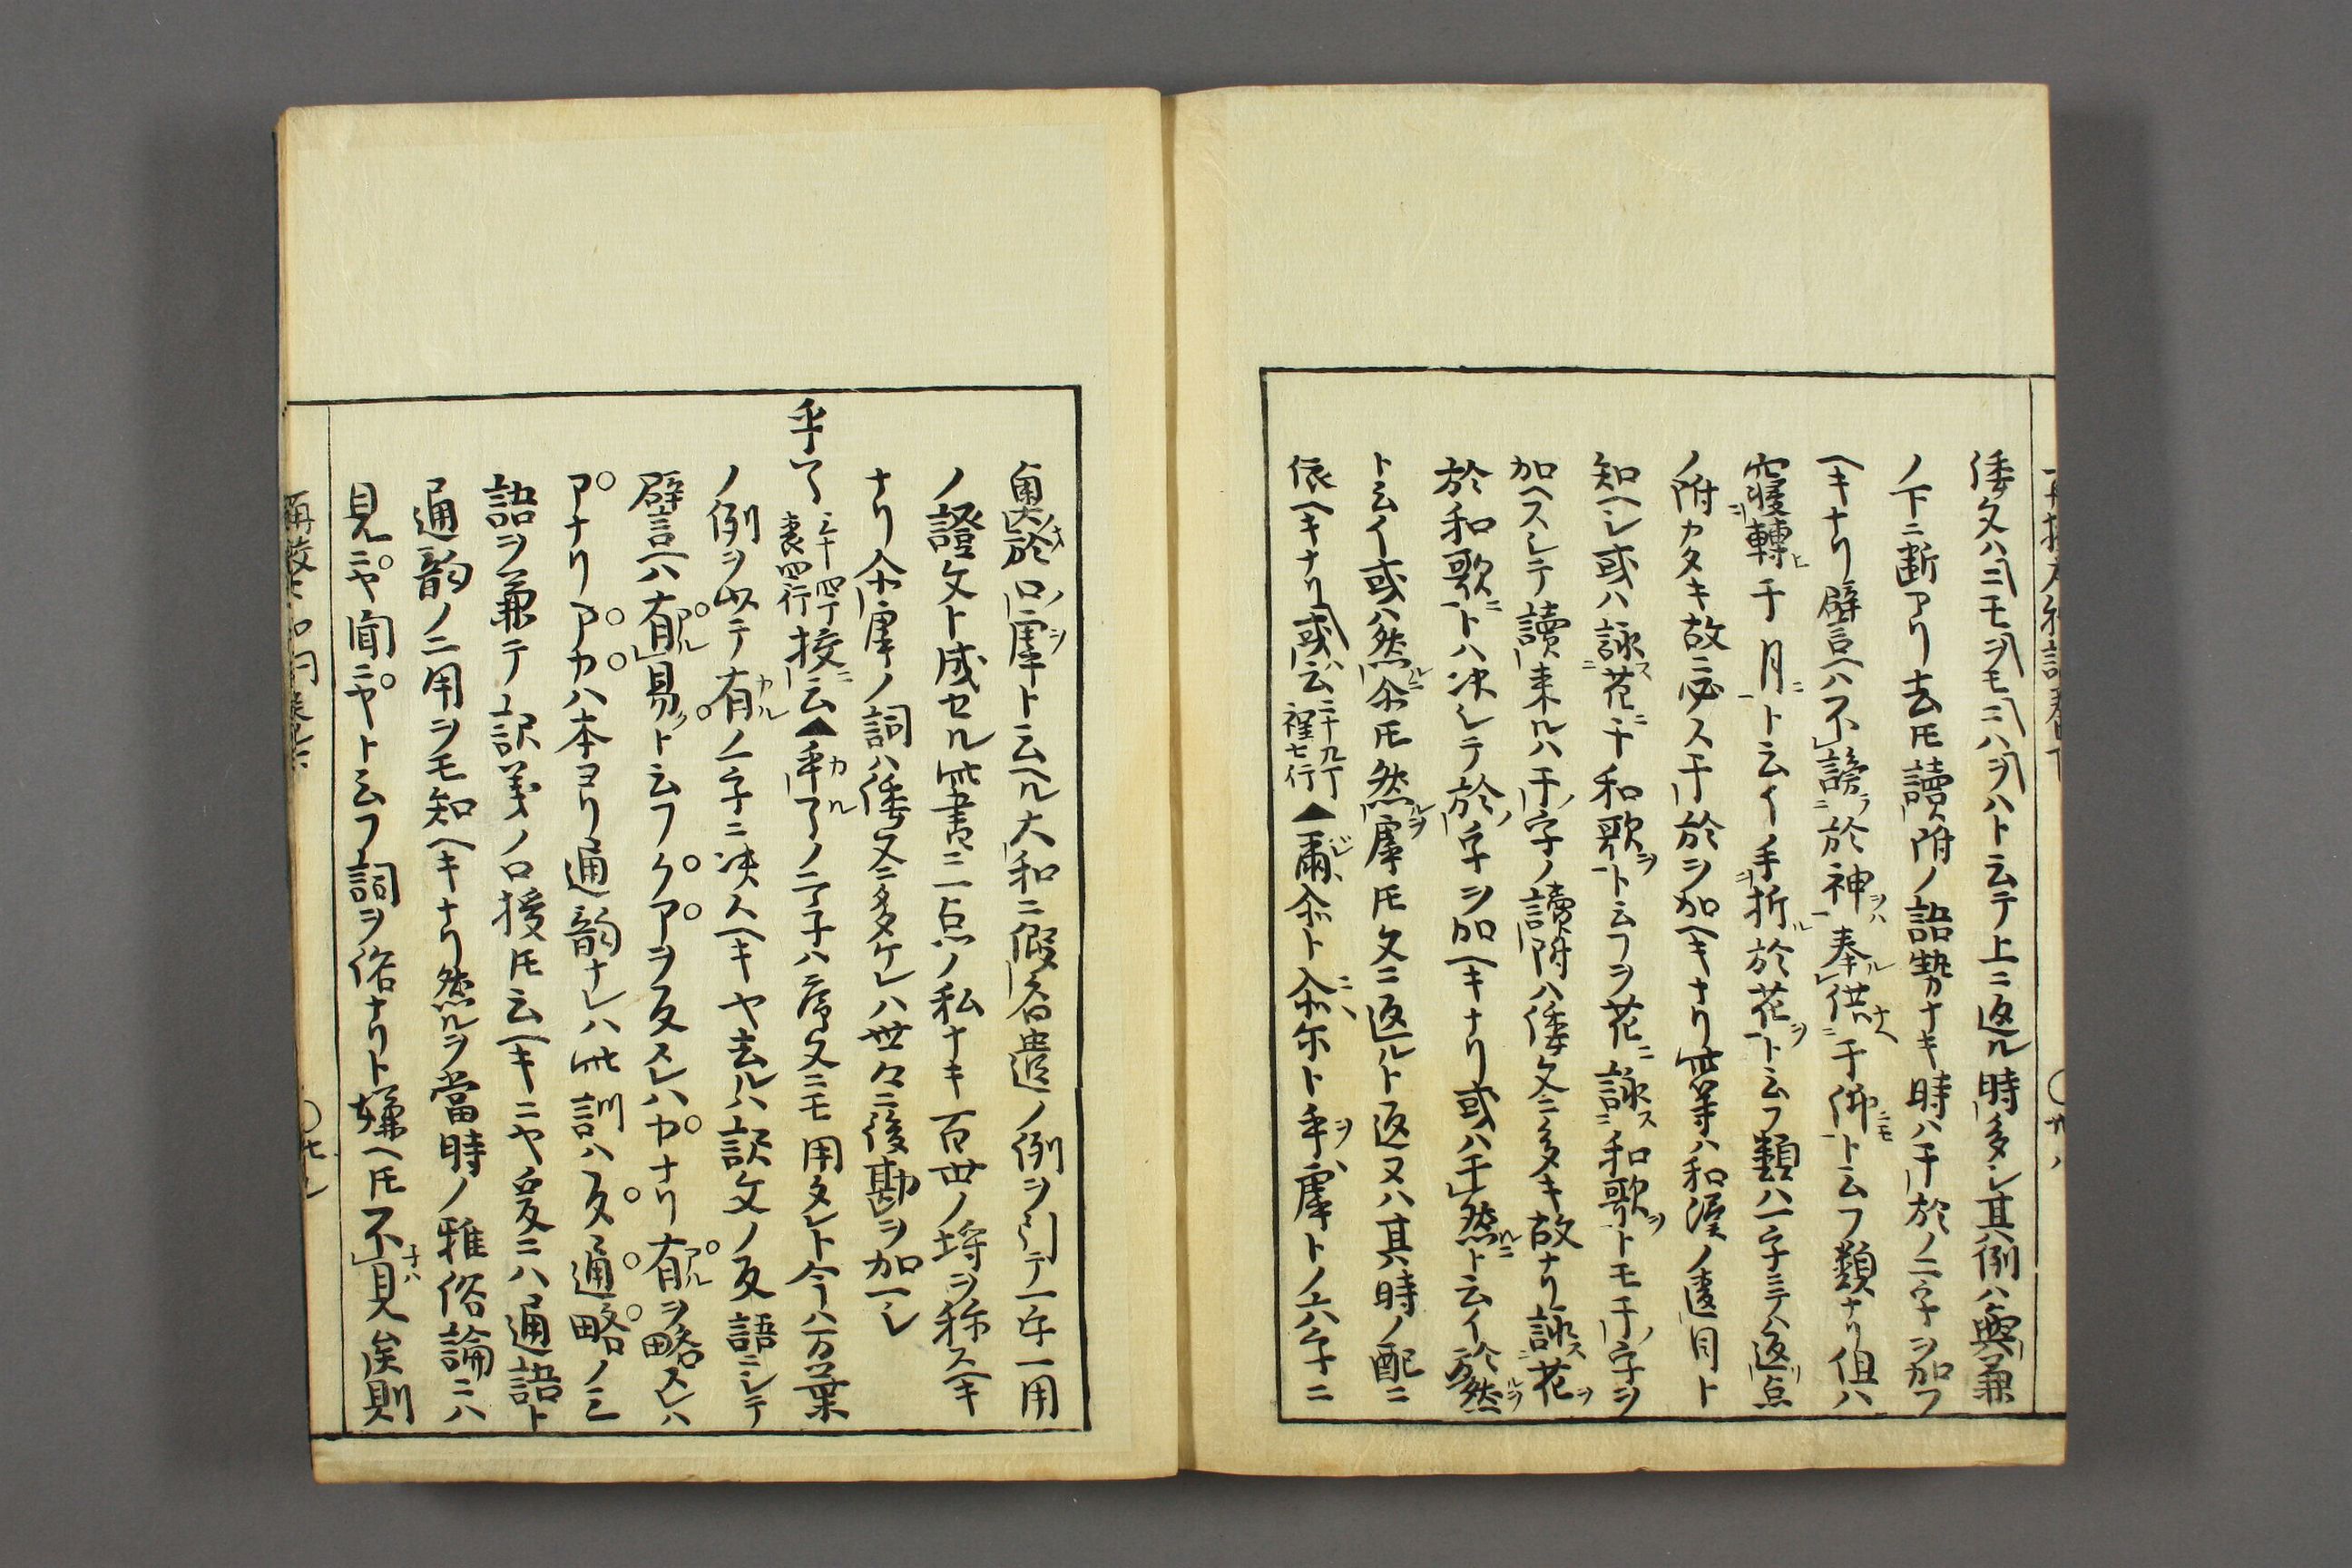 倭文ハニモヲモニハヲハト云テ上ニ返ル時多シ其例ハ興兼
ノ下ニ断アリ去𪜈讀附ノ語勢ナキ時ハ于於ノ二字ヲ加フ
ヘキナリ譬言ヘハ不謗於神奉供于佛ト云フ類ナリ但ハ
寝轉于月ト云イ手折於花ト云フ類ハ一字ミテハ返点
ノ附カタキ故ニ必ス于於ヲ加ヘキナリ此等ハ和漢ノ遠目ト
知ヘシ或ハ詠花于和歌ト云フヲ花ニ詠和歌トモ于字ヲ
加ヘスシテ讀来ルハ于字ノ讀附ハ倭文ニ多キ故ナリ詠花
於和歌トハ决シテ於字ヲ加ヘキナリ或ハ于然ト云イ於然
ト云イ或ハ然尒𪜈然摩𪜈文ニ返ルト返又ハ其時ノ配ニ
依ヘキナリ或云二十九丁裡七行▲爾尒ト尒尓ト乎摩トノ六字ニ
奥於口摩ト云ヘル大和ニ假名遣ノ例ヲ引テ一字一用
ノ證文ト成セル此書ニ一点ノ私ナキ百世ノ埓ヲ称スヘキ
ナリ尒摩ノ詞ハ倭文ニ多ケレハ世々ニ後勘ヲ加ヘシ
乎了 三十四丁表四行 按云▲乎了ノ二字ハ序文ニモ用タレト今ハ万葉
ノ例ヲ以テ有ノ一字ニ决スヘキヤ去ルハ訳文ノ反語ニシテ
譬言ヘハ有易ト云フクアヲ反スレハカナリ有ヲ略スレハ
アナリアカハ本ヨリ通韵ナレハ此訓ハ反通略ノ三
語ヲ兼テ訳義ノ口授𪜈云ヘキニヤ爰ニハ通語ト
通韵ノ二用ヲモ知ヘキナリ然ルヲ當時ノ雅俗論ニハ
見ニヤ聞ニヤト云フ詞ヲ俗ナリト嫌ヘ𪜈不見矣則